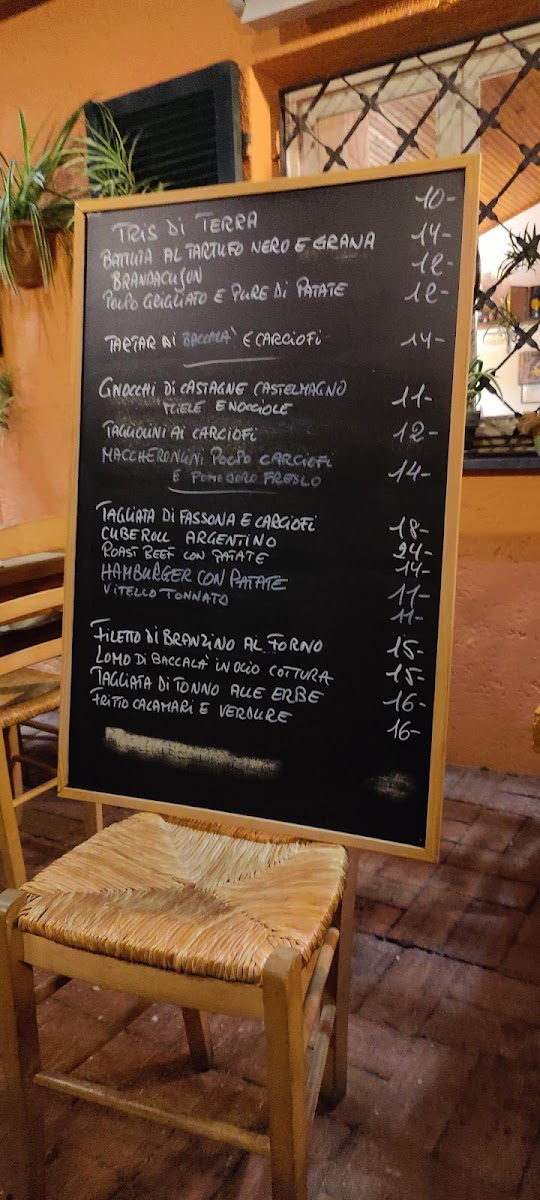 TRIS DI TERRA 10-
BATTUTA AL TARTUFO NERO E GRANA 14-
BRANDACUJON 12-
POLPO GRIGLIATO E PURE DI PATATE 12-
TARTAR DI BACCALA' E CARCIOFI 14-
GNOCCHI DI CASTAGNE CASTELMAGNO 11-
MIELE E NOCCIOLE
TAGLIOLINI AI CARCIOFI 12-
MACCHERONCINI POLPO CARCIOFI
E POMODORO FRESCO 14-
TAGLIATA DI FASSONA E CARCIOFI 18-
CUBEROLL ARGENTINO 24-
ROAST BEEF CON PATATE 14-
HAMBURGER CON PATATE 11-
VITELLO TONNATO 11-
FILETTO DI BRANZINO AL FORNO 15-
LOMO DI BACCALA' IN OLIO COTTURA 15-
TAGLIATA DI TONNO ALLE ERBE 16-
FRITTO CALAMARI E VERDURE 16-